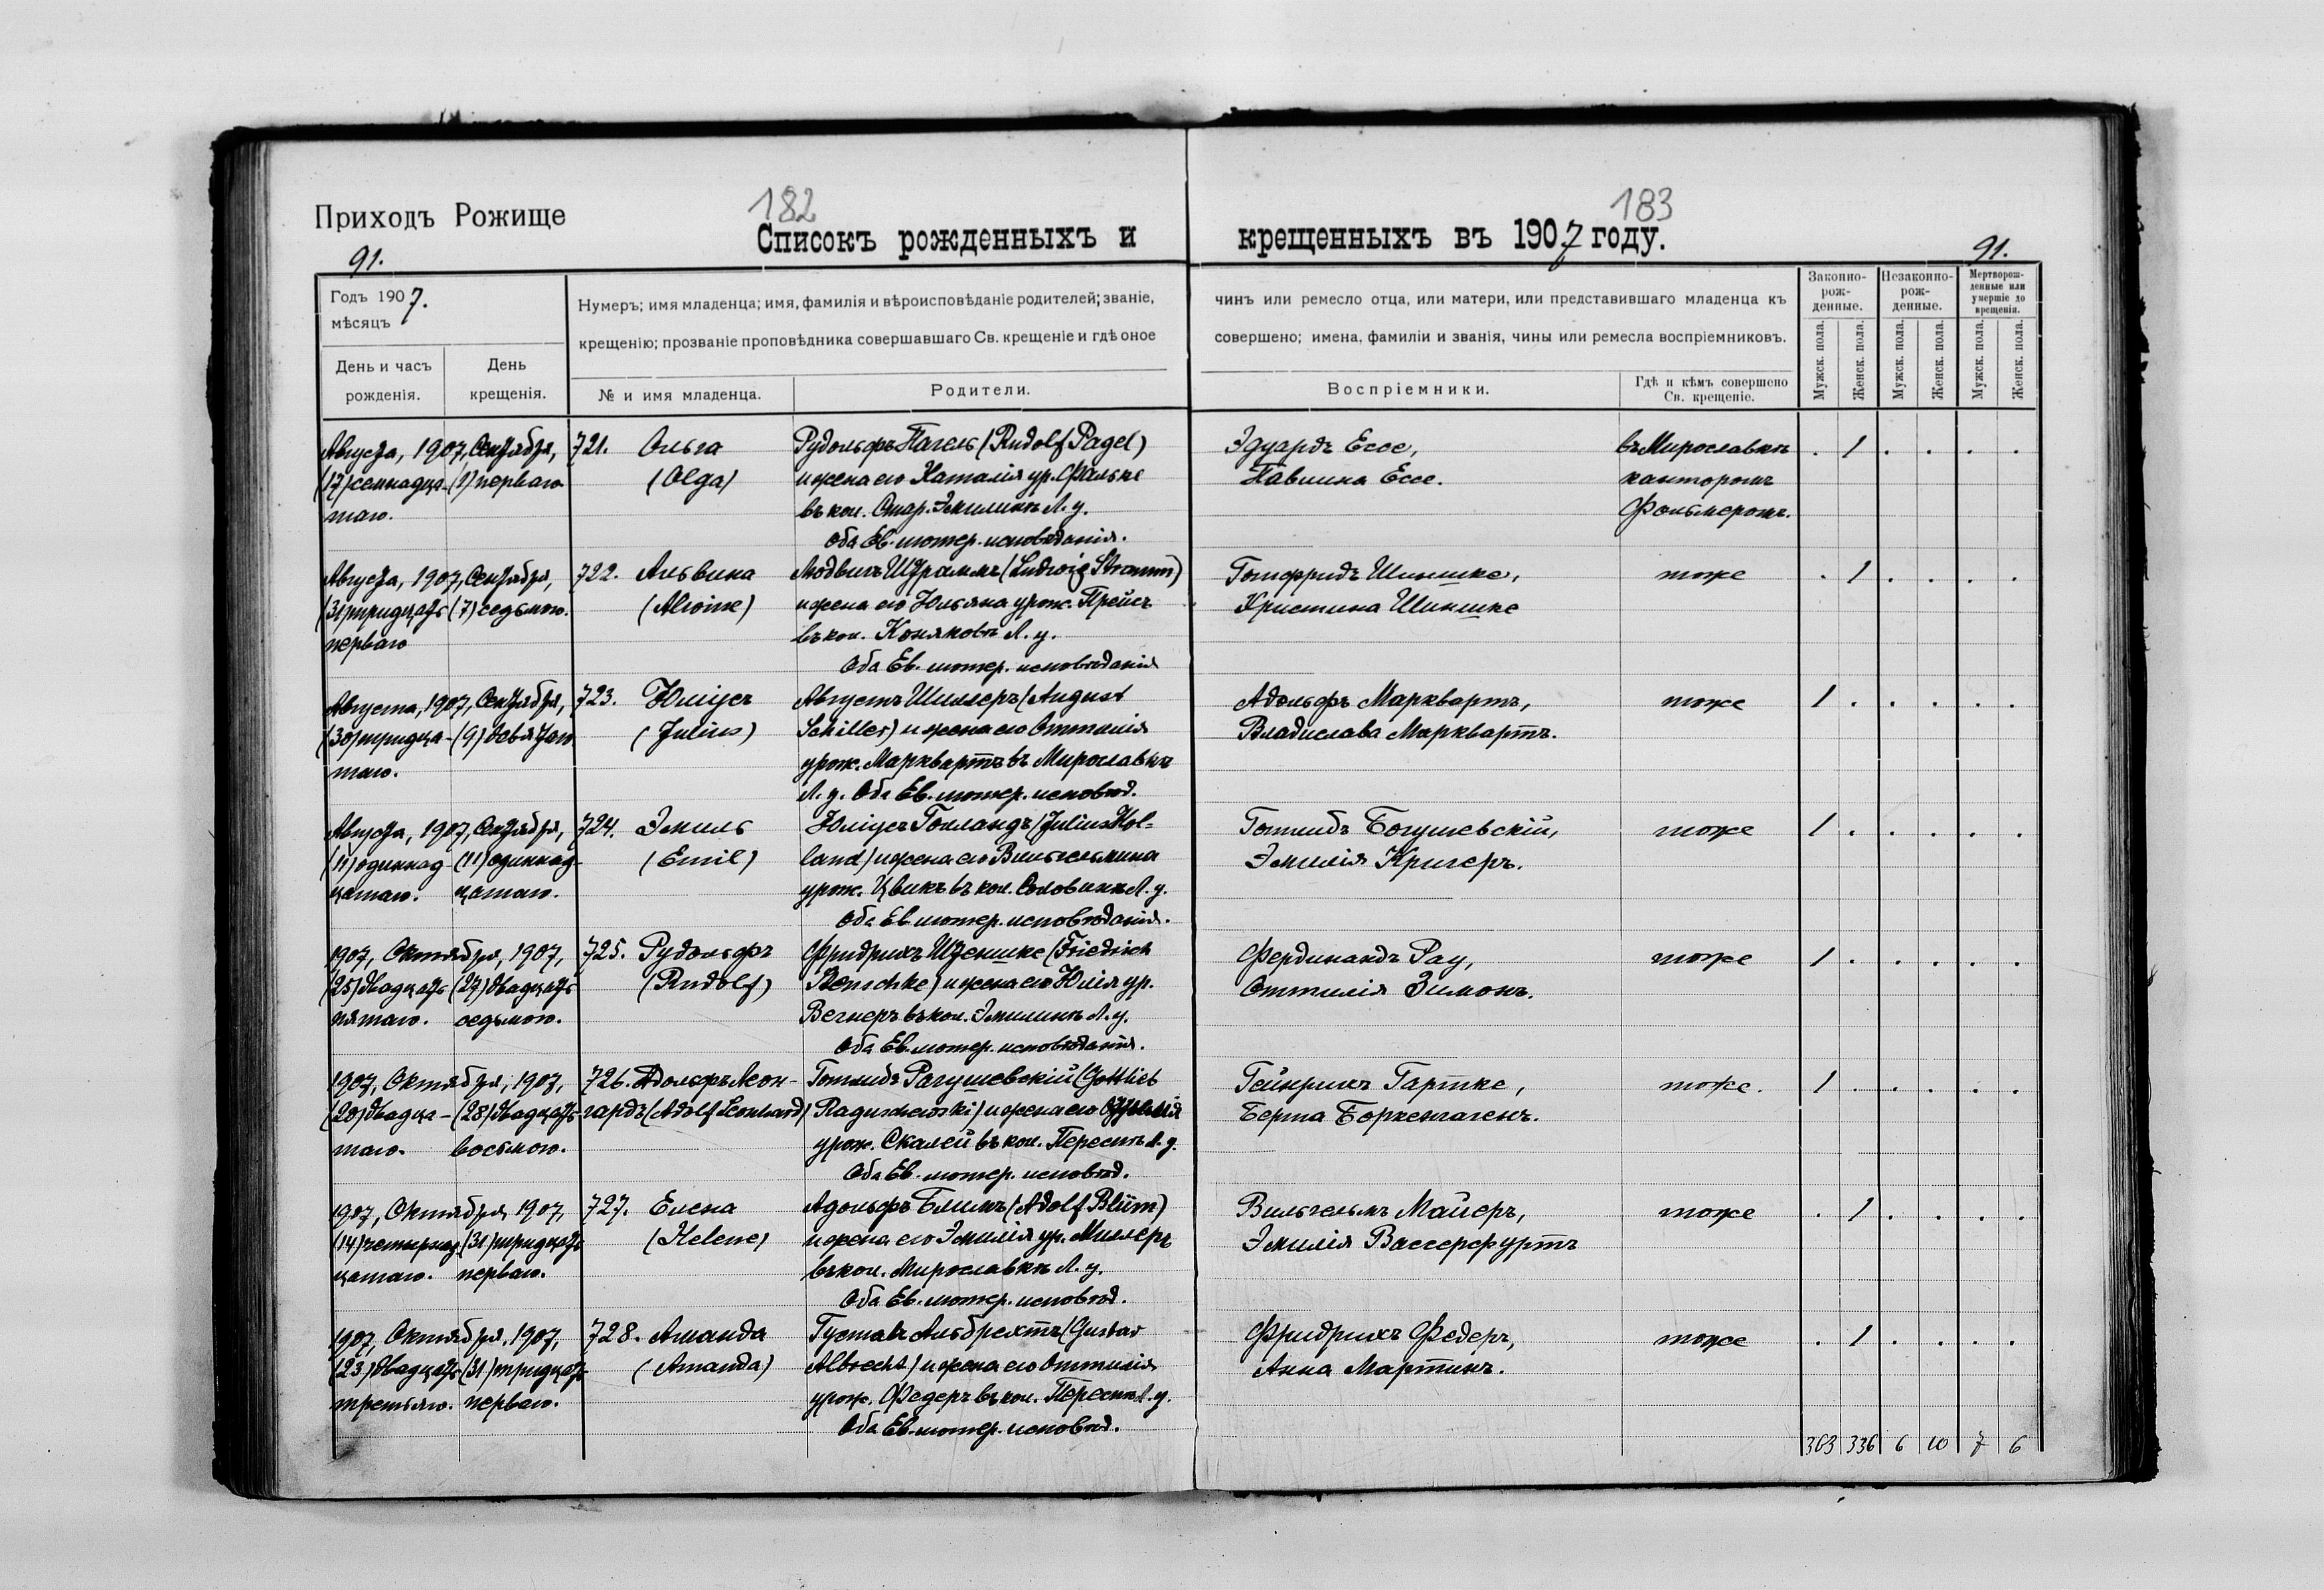 182
183
Приходъ Рожище
Списокъ рожденныхъ и
крещенныхъ въ 1907 году.
91.
91.
Годъ 1907.
мѣсяцъ
День и часъ
рожденія.
День
крещенія.
Нумеръ; имя младенца; имя, фамилія и вѣроисповѣданіе родителей; званіе,
крещенію; прозваніе проповѣдника совершавшаго Св. крещеніе и гдѣ оное
№ и имя младенца.
Родители.
чинъ или ремесло отца, или матери, или представившаго младенца къ
совершено; имена, фамиліи и званія, чины или ремесла воспріемниковъ.
Воспріемники.
Гдѣ и кѣмъ совершено
Св. крещеніе.
Законно-
рож-
денные.
Незаконно-
рож-
денные.
Мертворож-
денные или
умершіе до
крещенія.
Мужск. пола.
Женск. пола.
Мужск. пола.
Женск. пола.
Мужск. пола.
Женск. пола.
Августа, 1907, Сентября,
(17) семнадца- (1) перваго
таго.
721. Ольга
(Olga)
Рудольфъ Пагель (Rudolf Pagel)
и жена его Наталія ур. Фальке
въ кол. Стар. Эмилинѣ Л. у.
Оба Ев. лютер. исповѣданія.
Эдуардъ Ессе,
Павлина Ессе.
въ Мирославкѣ
канторомъ
Фольмеромъ.
. 1 . . . .
Августа, 1907, Сентября,
(31) тридцать (7) седьмого.
перваго
722. Альвина
(Alwine)
Людвигъ Штраммъ (Ludwig Stramm)
и жена его Юльяна урож. Прейсъ
въ кол. Коняковъ Л. у.
Оба Ев. лютер. исповѣданія
Готфридъ Шиншке,
Христина Шиншке
тоже
. 1 . . . .
Августа, 1907, Сентября,
(30) тридца- (9) девятаго
таго.
723. Юліусъ
(Julius)
Августъ Шиллеръ (August
Schiller) и жена его Оттилія
урож. Марквартъ въ Мирославкѣ
Л. у. Оба Ев. лютер. исповѣд.
Адольфъ Марквартъ,
Владислава Марквартъ.
тоже
1 . . . . .
Августа, 1907, Сентября,
(11) одиннад- (11) одиннад-
цатаго. цатаго.
724. Эмиль
(Emil)
Юліусъ Голландъ (Julius Hol-
land) и жена его Вильгельмина
урож. Цвикъ въ кол. Соловинѣ Л. у.
Оба Ев. лютер. исповѣданія.
Готлибъ Богушевскій,
Эмилія Кригеръ.
тоже
1 . . . . .
1907, Октября, 1907,
(25) двадцать (27) двадцать
пятаго. седьмого.
725. Рудольфъ
(Rudolf)
Фридрихъ Штеншке (Friedrich
Stenschke) и жена его Юлія ур.
Вегнеръ въ кол. Эмилинѣ Л. у.
Оба Ев. лютер. исповѣданія.
Фердинандъ Рау,
Оттилія Зимонъ.
тоже
1 . . . . .
1907, Октября, 1907,
(20) двадца- (28) двадцать
таго. восьмого.
726. Адольфъ Леон-
гардъ (Adolf Leonhard)
Готлибъ Рагушевскій (Gottlieb
Raguschewski) и жена его
урож. Скалей въ кол. Пересыпь Л. у.
Оба Ев. лютер. исповѣд.
Гейнрихъ Гартке,
Берта Боркенгагенъ.
тоже.
1 . . . . .
1907, Октября, 1907,
(14) четырнад (31) тридцать
цатаго. перваго.
727. Елена
(Helene)
Адольфъ Блимъ (Adolf Blüm)
и жена его Эмилія ур. Миллеръ
въ кол. Мирославкѣ Л. у.
Оба Ев. лютер. исповѣд.
Вильгельмъ Майеръ,
Эмилія Вассерфуртъ
тоже
. 1 . . . .
1907, Октября, 1907,
(23) двадцать (31) тридцать
третьяго. перваго.
728. Аманда
(Amanda)
Густавъ Альбрехтъ (Gustav
Albrecht) и жена его Оттилія
урож. Федеръ въ кол. Пересыпь Л. у.
Оба Ев. лютер. исповѣд.
Фридрихъ Федеръ,
Анна Мартинъ.
тоже
. 1 . . . .
363 336 6 10 7 6